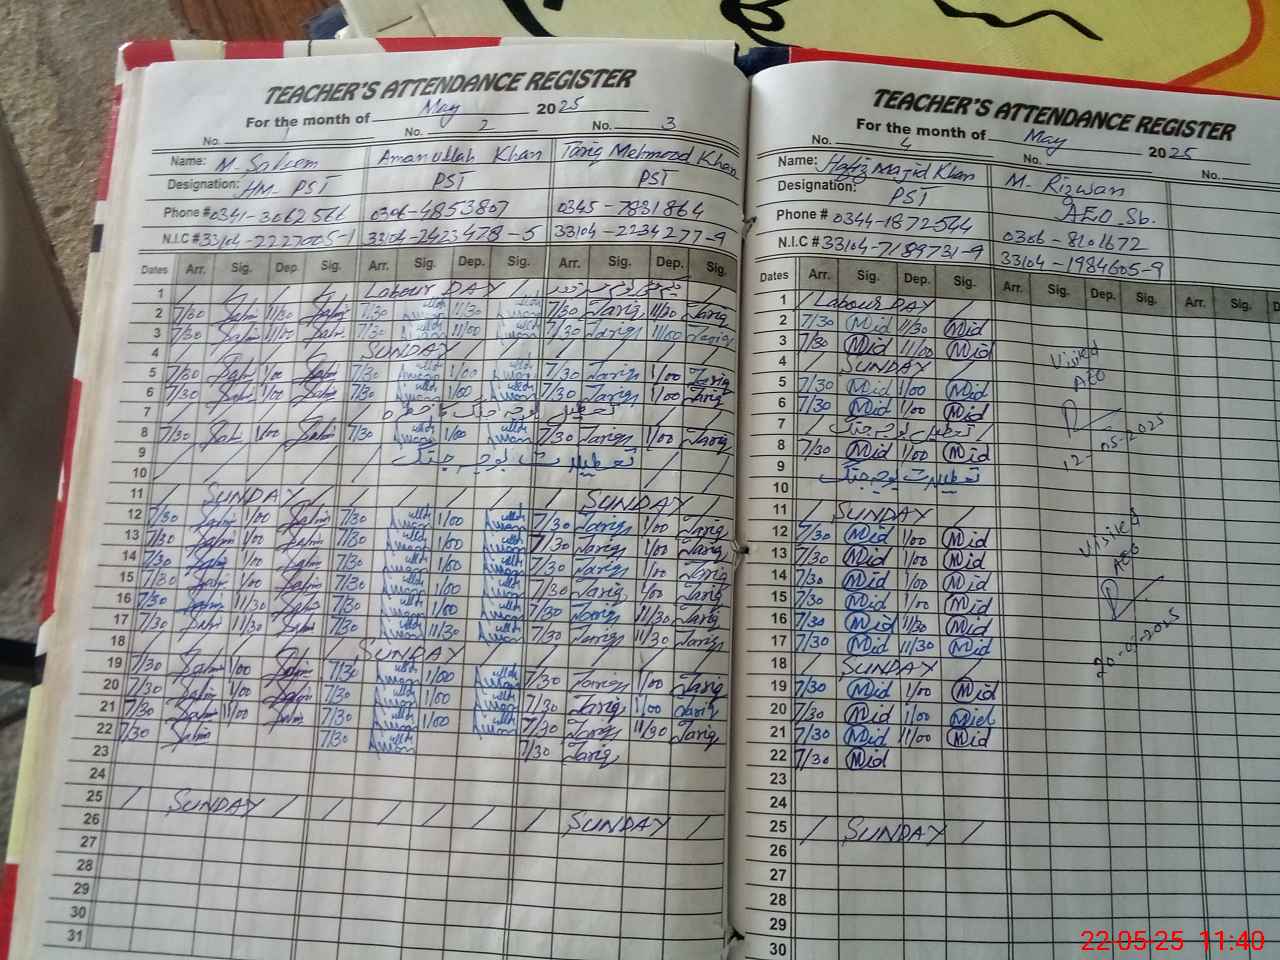 TEACHER'S ATTENDANCE REGISTER
For the month of May 2025
No. 1 No. 2 No. 3
Name: M. Saleem Amanullah Khan Tariq Mehmood Khan
Designation: HM PST PST PST
Phone # 0341-3062566 0306-4853807 0345-7831864
N.I.C # 33104-2227005-1 33104-2423478-5 33104-2234277-9
Dates Arr. Sig. Dep. Sig. Arr. Sig. Dep. Sig. Arr. Sig. Dep. Sig.
1 Labour DAY
2 7/30 11/30 7/30 11/30 7/30 Tariq 11/30 Tariq
3 7/30 11/00 7/30 11/00 7/30 Tariq 11/00 Tariq
4 SUNDAY
5 7/30 1/00 7/30 1/00 7/30 Tariq 1/00 Tariq
6 7/30 1/00 7/30 1/00 7/30 Tariq 1/00 Tariq
7
8 7/30 1/00 7/30 1/00 7/30 Tariq 1/00 Tariq
9 تعطیلات بوجہ جنگ
10
11 SUNDAY SUNDAY
12 7/30 1/00 7/30 1/00 7/30 Tariq 1/00 Tariq
13 7/30 1/00 7/30 1/00 7/30 Tariq 1/00 Tariq
14 7/30 1/00 7/30 1/00 7/30 Tariq 1/00 Tariq
15 7/30 1/00 7/30 1/00 7/30 Tariq 1/00 Tariq
16 7/30 11/30 7/30 1/00 7/30 Tariq 11/30 Tariq
17 7/30 11/30 7/30 11/30 7/30 Tariq 11/30 Tariq
18 SUNDAY
19 7/30 1/00 7/30 1/00 7/30 Tariq 1/00 Tariq
20 7/30 1/00 7/30 1/00 7/30 Tariq 1/00 Tariq
21 7/30 11/00 7/30 11/00 7/30 Tariq 11/30 Tariq
22 7/30 7/30 7/30 Tariq
23
24
25 SUNDAY SUNDAY
26
27
28
29
30
31
TEACHER'S ATTENDANCE REGISTER
For the month of May 2025
No. 4 No. No.
Name: Hafiz Majid Khan M. Rizwan
Designation: PST AEO Sb.
Phone # 0344-1872544 0306-8101672
N.I.C # 33104-7189731-9 33104-1984605-9
Dates Arr. Sig. Dep. Sig. Arr. Sig. Dep. Sig. Arr. Sig.
1 Labour DAY
2 7/30 Mid 11/30 Mid
3 7/30 Mid 11/00 Mid
4 SUNDAY
5 7/30 Mid 1/00 Mid
6 7/30 Mid 1/00 Mid
7
8 7/30 Mid 1/00 Mid
9 تعطیلات بوجہ جنگ
10
11 SUNDAY
12 7/30 Mid 1/00 Mid
13 7/30 Mid 1/00 Mid
14 7/30 Mid 1/00 Mid
15 7/30 Mid 1/00 Mid
16 7/30 Mid 11/30 Mid
17 7/30 Mid 11/30 Mid
18 SUNDAY
19 7/30 Mid 1/00 Mid
20 7/30 Mid 1/00 Mid
21 7/30 Mid 11/00 Mid
22 7/30 Mid
23
24
25 SUNDAY
26
27
28
29
30
Visited
AEO
12-05-2025
Visited
AEO
20-05-2025
22-05-25 11:40